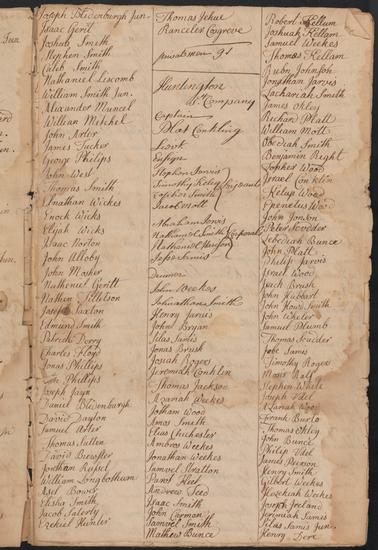 Joseph Blidenburgh Jun
Isaac Gerit
Joshua Smith
Stephen Smith
Caleb Smith
Nathaniel Liscomb
William Smith Jun.
Alexander Muncel
William Mitchel
John Arter
James Tucker
George Philips
John West
Thomas Smith
Jonathan Wickes
Enock Wicks
Elijah Wicks
Isaac Norton
John Alloby
John Mosher
Nathaniel Geritt
Nathan Tillitson
Joseph Saxton
Edmund Smith
Patrick Derry
Charles Floyd
Jonas Phillips
Phillips
Joseph Jayn
Daniel Blidenburgh
David Dayton
Samuel Arter
Thomas Sutten
David Brewster
Jordhan Rusel
William Longbothum
Asel Bower
Elisha Smith
Jacob Saterly
Ezekiel Hunter
Thomas Jehue
Ranceler Cosgrove
privates men 91
Huntington
Company
Captain
Plat Conkling
Ensign
Stephen Jarvis
Timothy Kelcy
Jacob Mott
Abraham Jervis
Nathaniel
Drumer
John Weekes
Johnathan Smith
Henry Jarvis
John Bryan
Silas Samis
Jonas Brush
Josiah Rogers
Jeremiah Conklin
Thomas Jackson
Azariah Weekes
Jotham Wood
Amos Smith
Elias Chichester
Ambros Weekes
Jonathan Weekes
Samuel Stratton
Andrew Seed
Isaac Smith
John Carman
Samuel Smith
Mathew Bunce
Robert Kellum
Joshuah Kellam
Samuel Weekes
Thomas Kellam
Rubn Johnson
Jonathan Jarvis
Zachariah Smith
James Okley
Richard Platt
William Mott
Obediah Smith
Benjamin Reght
Wood
Israel Conklin
Kelap Wood
Epenetus Wood
John Jonson
Peter Scudder
Zebediah Bunce
John Platt
Philip Jarvis
Israel Wood
John Hubbart
John How Smith
John Wheler
Samuel Plumb
Thomas Scudder
Jobe Sames
Timothy Rogers
Moses Rolf
Stephen White
Joseph Udel
Azariah Wood
Frank
Thomas Okley
John Bunce
Philip Udel
James Peerson
Henry Smith
Gilbert Weekes
Hezekiah Weekes
Joseph Ireland
Jeremiah Samis
Silas Samis Jun
Henry Dere